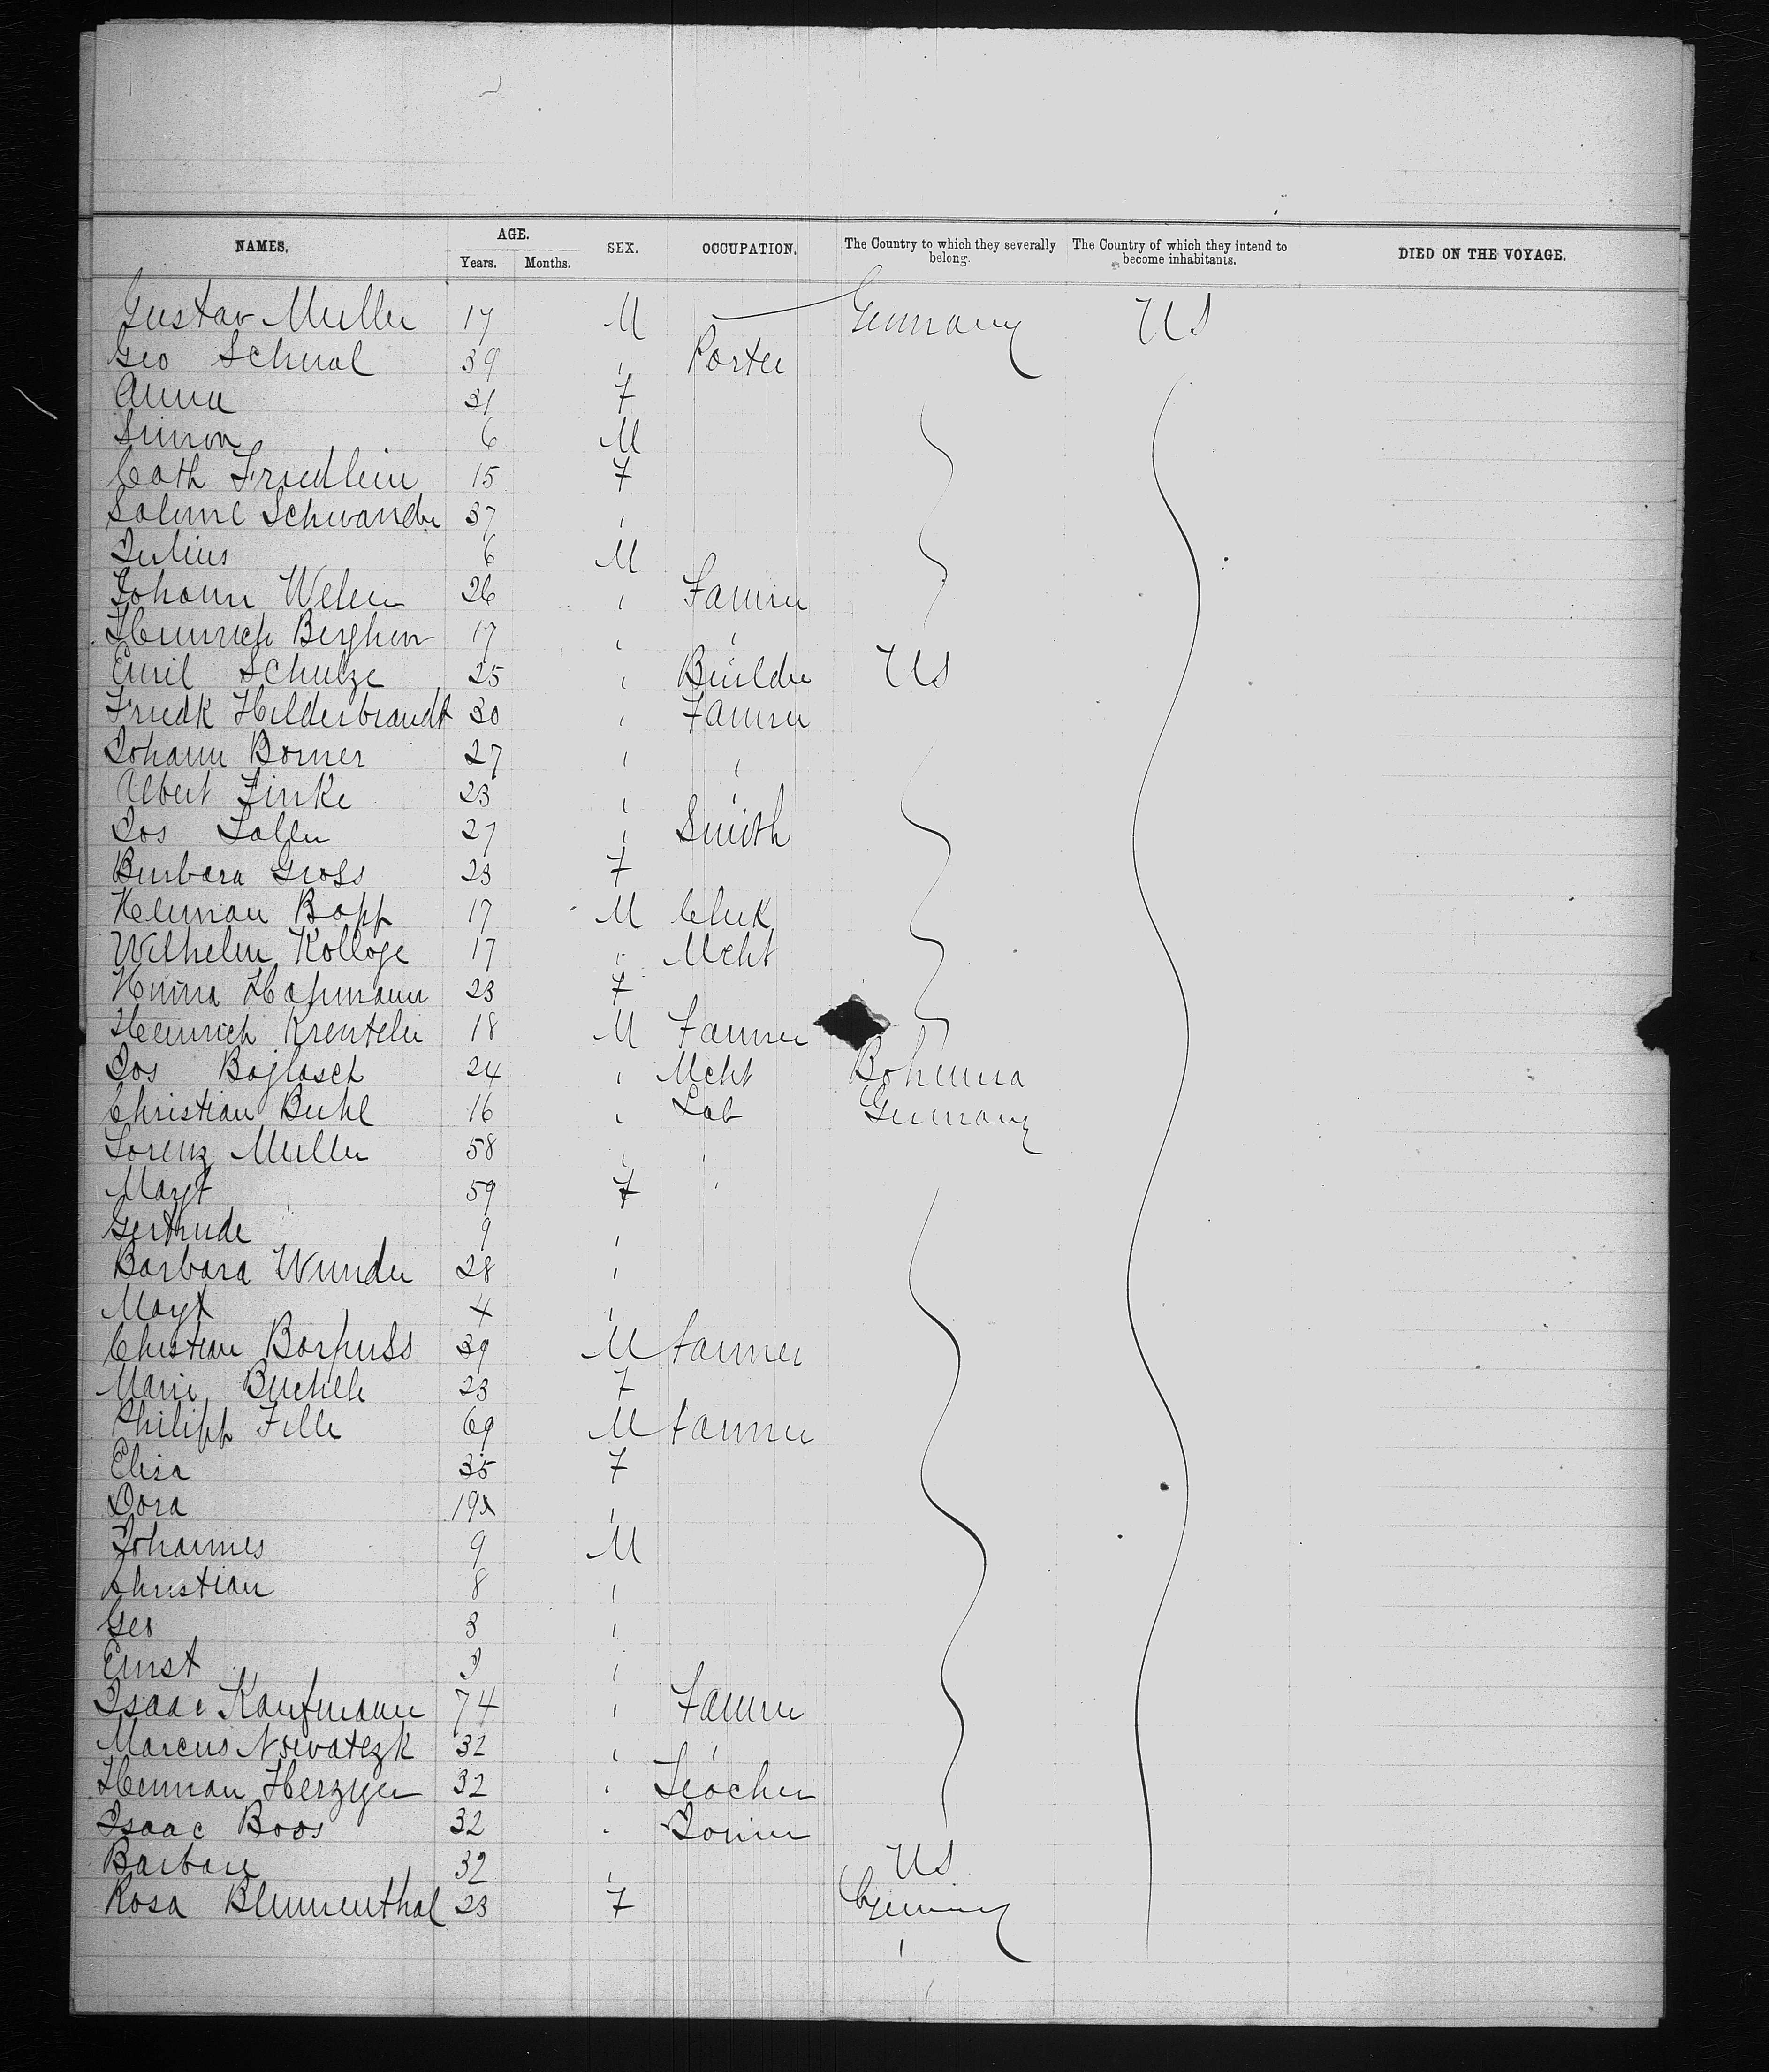 NAMES. AGE. SEX. OCCUPATION. The Country to which they severally belong. The Country of which they intend to become inhabitants. DIED ON THE VOYAGE.
Years. Months.
Gustav Muller 17 M — Germany US
Geo Schnal 39 " Porter
Anna 31 F
Simon 6 M
Cath Friedlein 15 F
Salome Schwander 37 "
Julius 6 M
Johann Weber 26 " Farmer
Heinrich Berghorn 17 " "
Emil Schulze 25 " Builder US
Friedk Hilderbrandt 30 " Farmer
Johann Borner 27 " "
Albert Finke 23 " "
Jos Faller 27 " Smith
Barbara Gross 23 F
Herman Bopp 17 M Clerk
Wilhelm Kolloge 17 " Mcht
23 F
Heinrich Kreuteler 18 M Farmer
Jos 24 " Mcht Bohemia
Christian Buhl 16 " Lab Germany
Lorenz Muller 58 " "
Margt 59 F "
Gertrude 9 "
Barbara Wunder 28 "
Margt 4 "
Christian Barfuss 39 M farmer
Marie Buchele 23 F
Philipp Fille 69 M farmer
Elisa 35 F
Dora 19 "
Johannes 9 M
Christian 8 "
Geo 3 "
Ernst "
Isaac Kaufmann 74 " Farmer
Marcus Nowatezk 32 " "
Herman Herzger 32 " Teacher
Isaac Boos 32 " Joiner
Barbara 32 " US
Rosa Blumenthal 23 F Germany
"